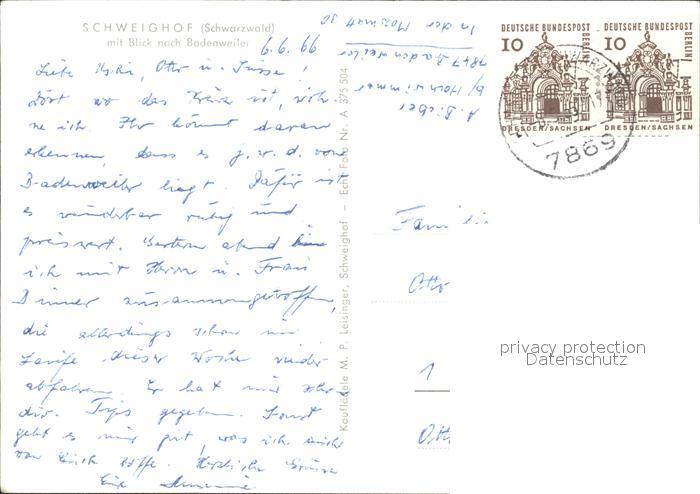 SCHWEIGHOF (Schwarzwald)
mit Blick nach Badenweiler
6.6.66
Liebe Otto u.
Dort wo das ist, woh-
ne ich. Ihr könnt daran
erkennen, dass es j.w.d. von
Badenweiler liegt. Dafür ist
es wunderbar ruhig und
preiswert. Gestern abend bin
ich mit Herrn u. Frau
Dinner zusammengetroffen,
die allerdings schon im
Laufe dieser Woche wieder
abfahren. Er hat mir
div. Tips gegeben. Sonst
geht es mir gut, was ich auch
von Euch hoffe. Herzliche Grüsse
Eure
A.
b/
7847 Badenweiler
In der
Kauflädele M. P. Leisinger, Schweighof – Echt Foto Nr. A 375 504
DEUTSCHE BUNDESPOST
10
BERLIN
DRESDEN/SACHSEN
DEUTSCHE BUNDESPOST
10
BERLIN
DRESDEN/SACHSEN
7869
Famili
Otto
1
Ott
privacy protection
Datenschutz